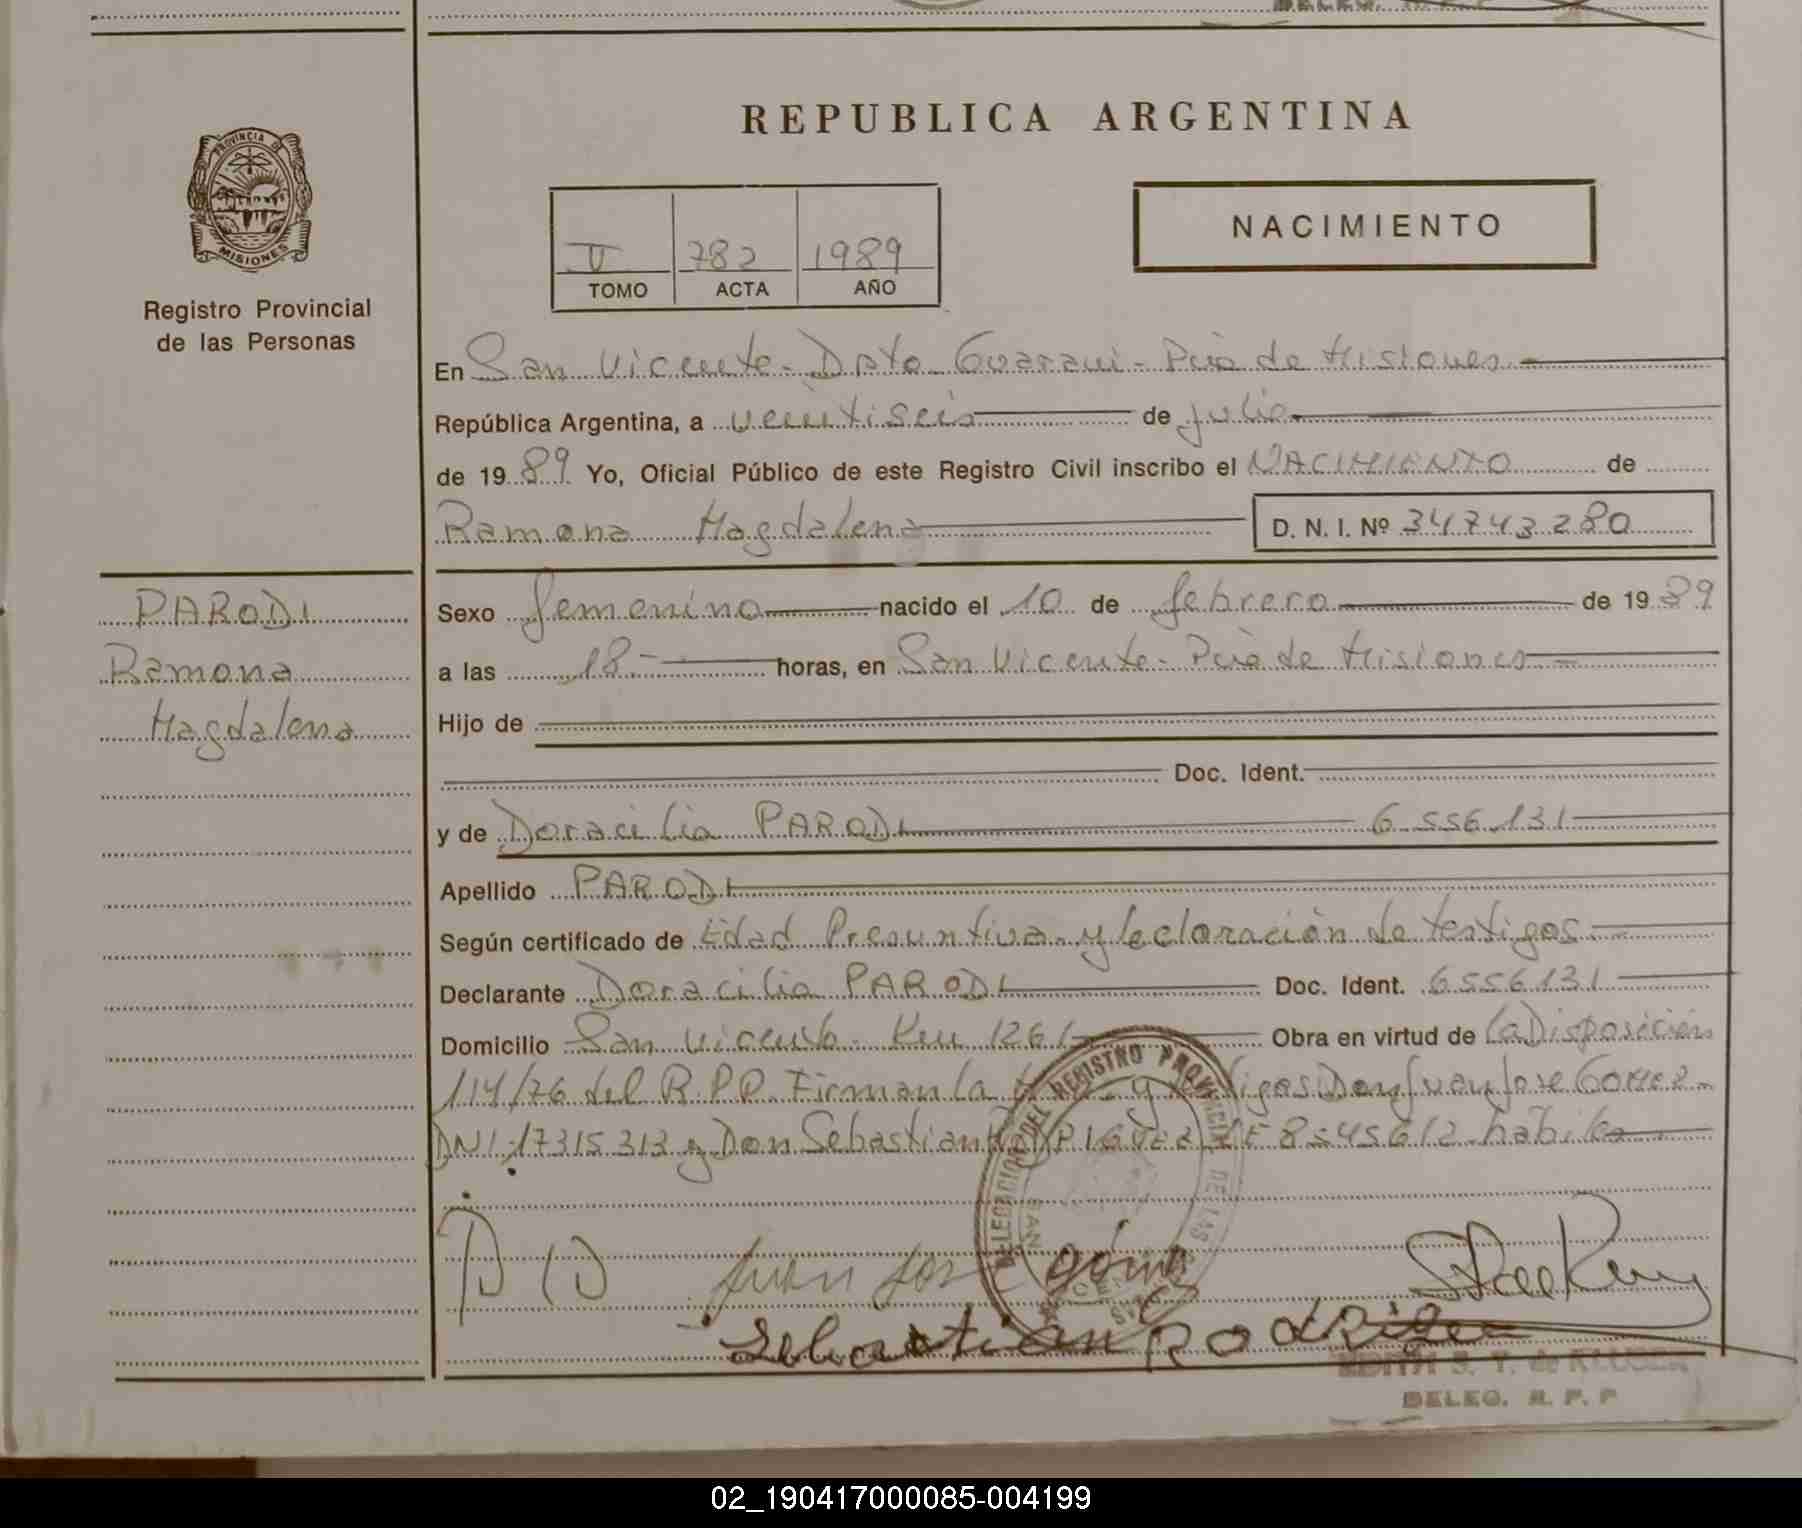 REPUBLICA ARGENTINA
PROVINCIA DE
MISIONES
Registro Provincial
de las Personas
II 782 1989
TOMO ACTA AÑO
NACIMIENTO
En San Vicente - Dpto Guarani - Pcia de Misiones
República Argentina, a veintiseis de julio
de 1989 Yo, Oficial Público de este Registro Civil inscribo el NACIMIENTO de
Ramona Magdalena D. N. I. Nº 34743280
PARODI
Ramona
Magdalena
Sexo femenino nacido el 10 de febrero de 1989
a las 18 - horas, en San Vicente - Pcia de Misiones
Hijo de
Doc. Ident.
y de Doracilia PARODI 6556131
Apellido PARODI
Según certificado de Edad Presuntiva y declaración de testigos
Declarante Doracilia PARODI Doc. Ident. 6556131
Domicilio San Vicente Km 1261 Obra en virtud de la Disposición
114/76 del R.P.P. Firman la y testigos Don Juan Jose Gomez
DNI 17315313 y Don Sebastian RODRIGUEZ LE 8545612 habiles
DELEGACION DEL REGISTRO PROVINCIAL DE LAS
SAN VICENTE
Juan Jose Gómez
Sebastian Rodriguez
EDITH S. T. de KLUGER
DELEG. R. P. P
02_190417000085-004199